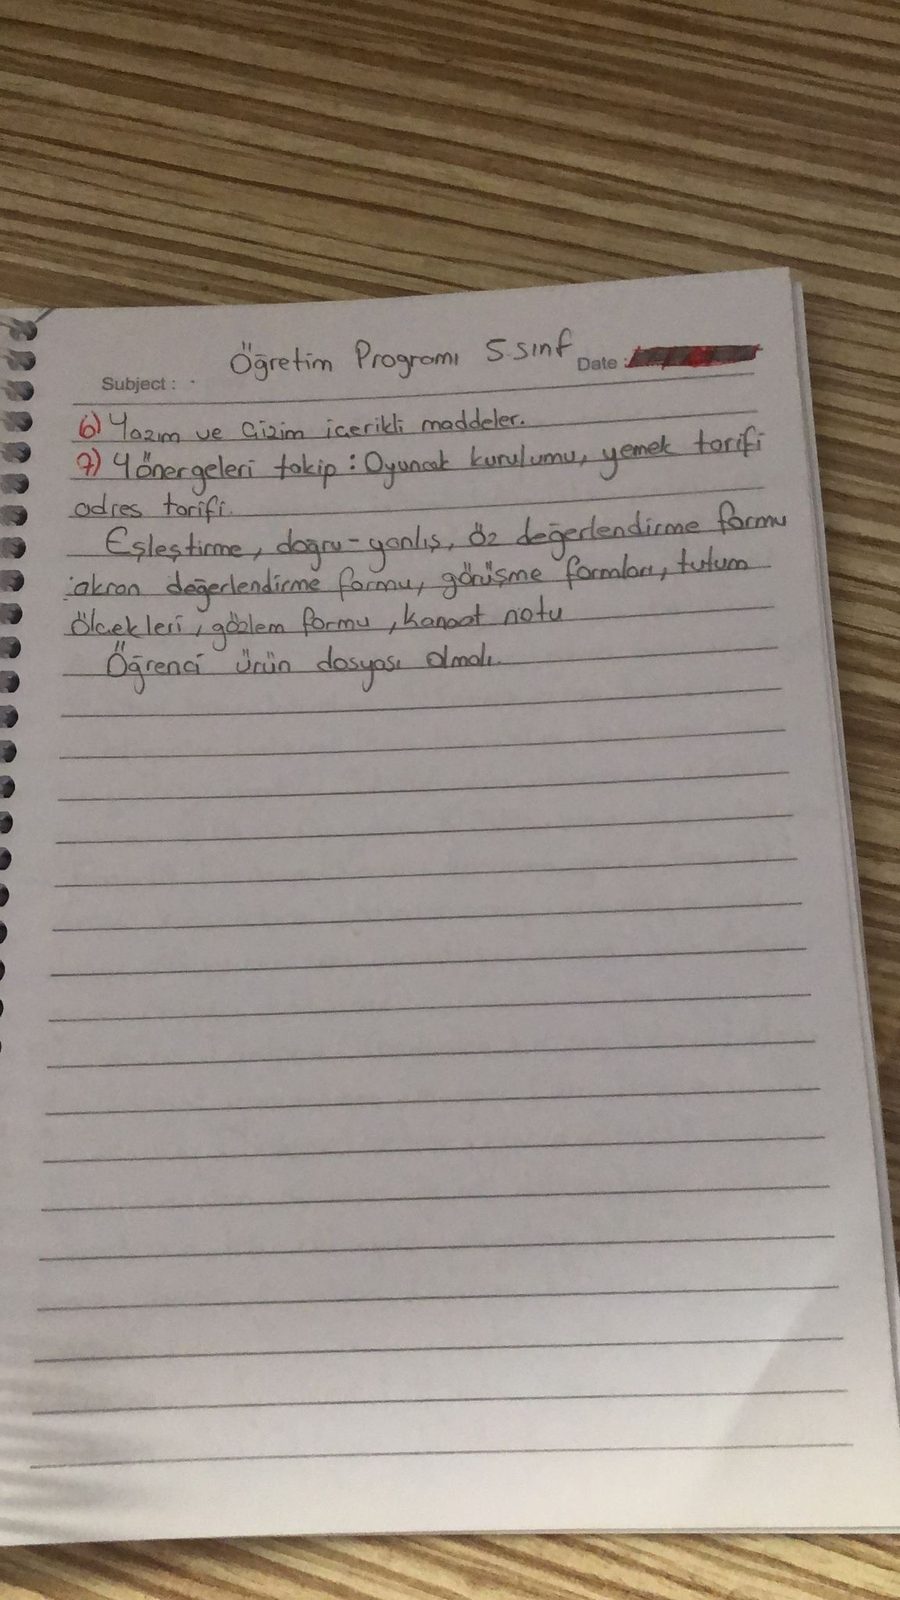 Öğretim Programı 5.sınıf
Subject :
Date :
6) Yazım ve Çizim içerikli maddeler.
7) Yönergeleri takip : Oyuncak kurulumu, yemek tarifi
adres tarifi.
Eşleştirme, doğru-yanlış, Öz değerlendirme formu
akran değerlendirme formu, görüşme formları, tutum
ölçekleri, gözlem formu, kanaat notu
Öğrenci ürün dosyası olmalı.